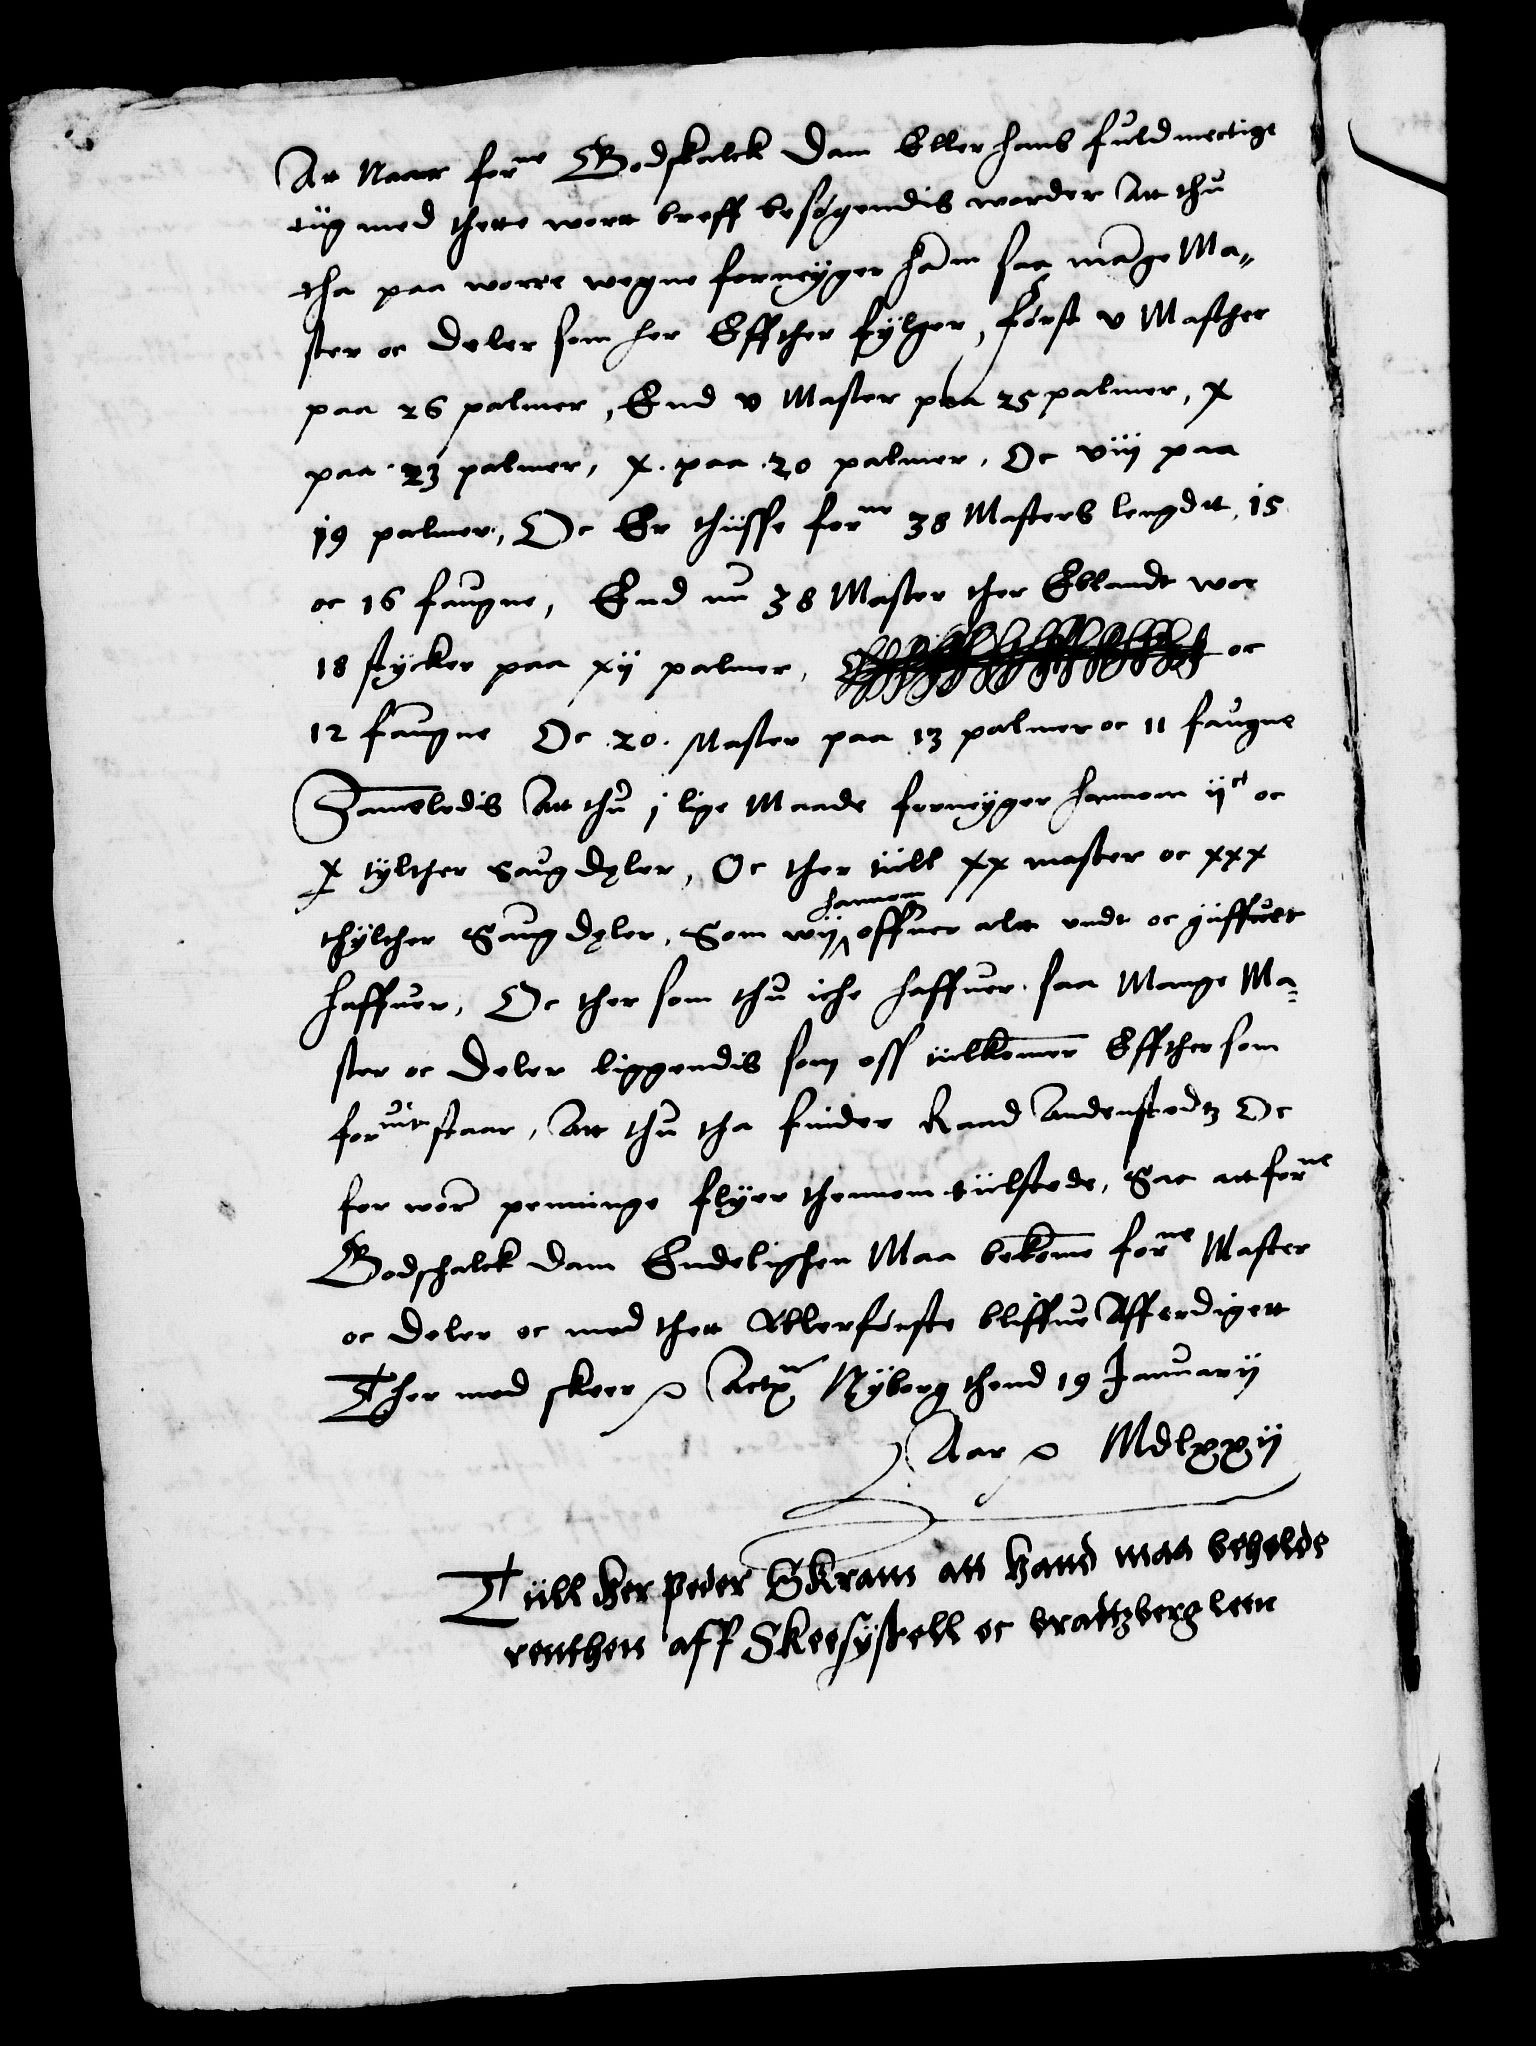 At Naar forne Godskalck Dam Eller hans fuldmectige
tiig med thette wort breff besøgendis worder Att thu
tha paa worre wegne fornøyger ham saa mange Ma-
ster oc deler som her Effther fylger, først v Masther
paa 26 palmer, End v Master paa 25 palmer, x
paa 23 palmer, x. paa .20 palmer. Oc viij paa
19 palmer, Oc Er thiisse forne 38 Masters lengdtt, 15
oc 16 faugne, End nu 38 Master ther Eblandt wor
18 stycker paa xij palmer, oc
12 faugne Oc .20. Master paa 13 palmer oc 11 faugne
Sameledis Att thu j lige Maade fornøyger hannom ijc oc
x tylther Saug deler, Oc ther tiill xx master oc xxx
thylther Saug deler, Som wij hannom offuer alt undt oc giiffuet
haffuer, Oc ther som thu iche haffuer saa Mange Ma-
ster oc Deler liggendis som oss tiilkommer Effther som
foruit staar, Att thu tha finder Raad Andenstedtz Oc
for wor penninge flyer thennom tiilstede, Saa att forne
Godschalck dam Endelighen Maa bekomme forne Master
oc deler oc med thett Allerførste bliffue Afferdigett
Ther med skeer Actum Nyborg thend 19 January
Aar Mdlxxij
Tiill Her Peder Skram att Hand maa beholde
renthen aff Skeesyssell oc brattzberg leen